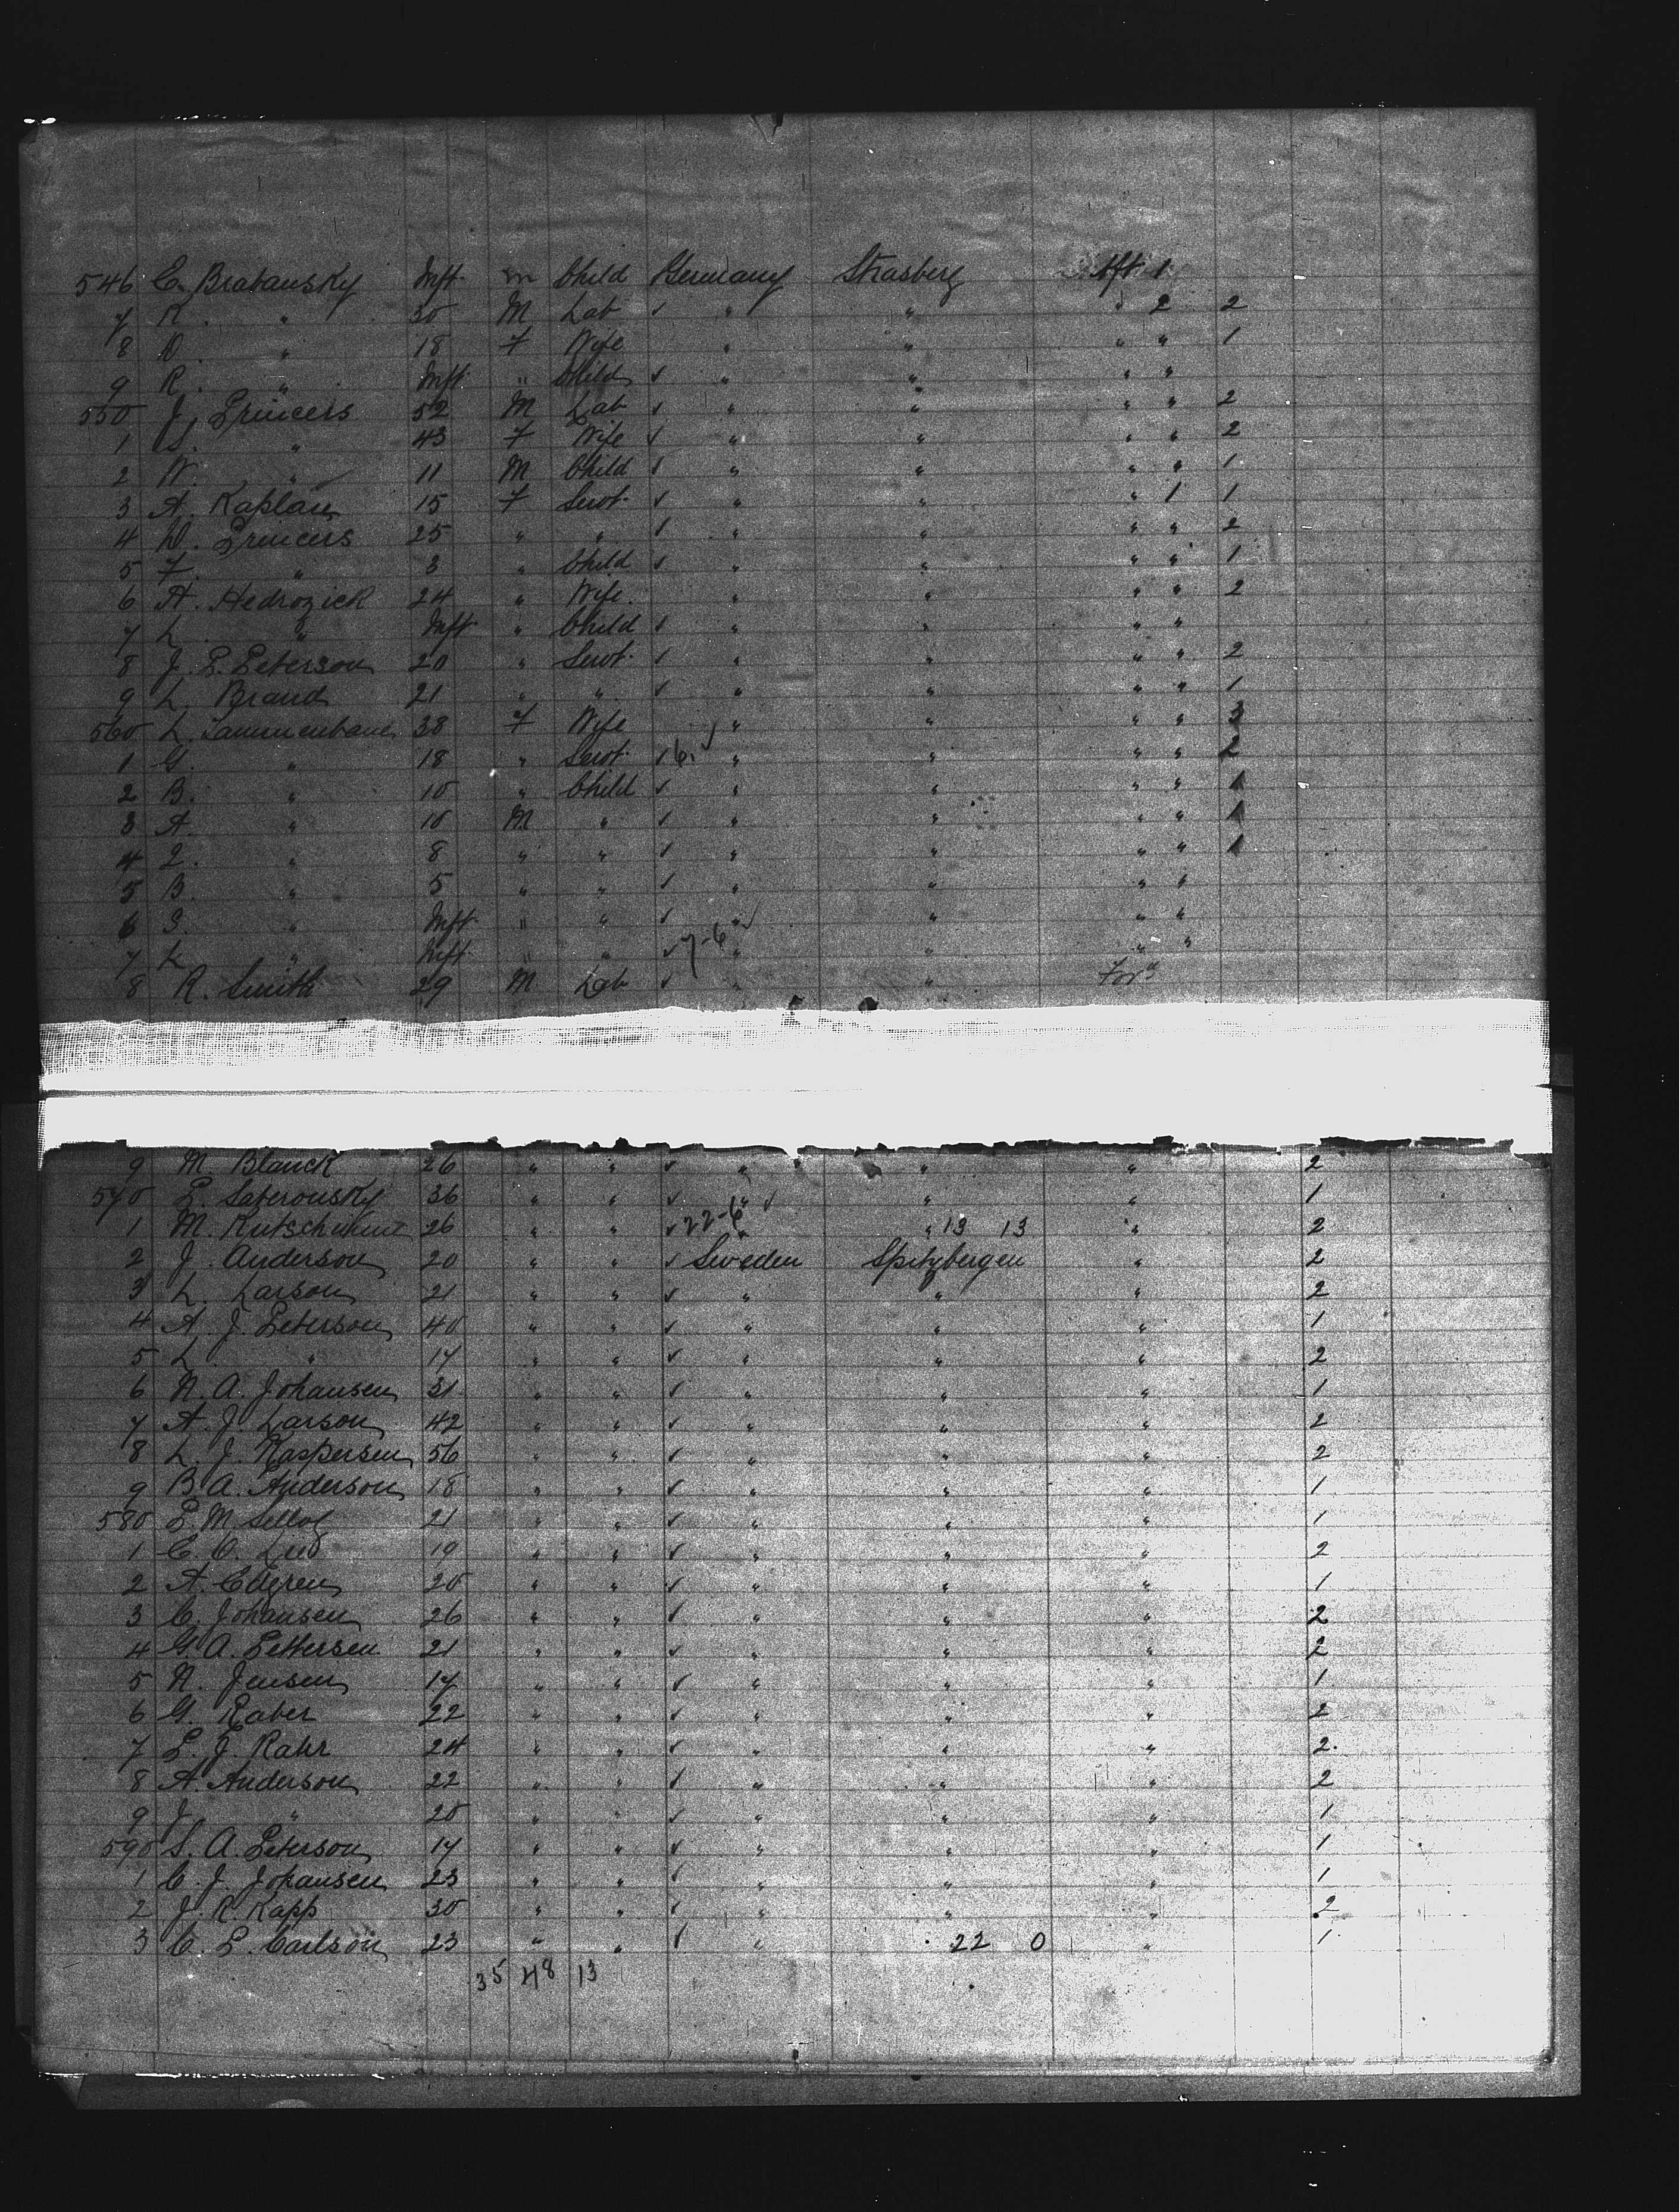 546 C. Brabansky Inft m Child Germany Strasberg Aft 1
7 R. " 30 M Lab ✓ " " " 2 2
8 D. " 18 F Wife " " " " 1
9 R. " Inft " Child ✓ " " " "
550 J. Princers 52 M Lab ✓ " " " " 2
1 S. " 43 F Wife ✓ " " " " 2
2 W. " 11 M Child ✓ " " " " 1
3 A. Kaplan 15 F Servt ✓ " " " 1 1
4 D. Princers 25 " " ✓ " " " " 2
5 F. " 3 " Child ✓ " " " " 1
6 A. Hedrozick 24 " Wife " " " " 2
7 L. " Inft " Child ✓ " " " "
8 J. P. Peterson 20 " Servt ✓ " " " " 2
9 L. Brand 21 " " ✓ " " " " 1
560 L. 38 F Wife ✓ " " " " 3
1 G. " 18 " Servt ✓ 6. " " " " 2
2 B. " 10 " Child ✓ " " " " 1
3 A. " 10 M " ✓ " " " " 1
4 " 8 " " ✓ " " " " 1
5 B. " 5 " " ✓ " " " "
6 " Inft " " ✓ " ✓ " " "
7 L " Inft " " ✓ 7-6 " " " "
8 R. Smith 29 M Lab ✓ " " For'd
9 M. Blanck 26 " " ✓ " " " 2
570 P. Saberousky 36 " " ✓ " ✓ " " 1
1 M. 26 " " ✓ 22-6 " " 13 13 " 2
2 J. Anderson 20 " " ✓ Sweden Spitzbergen " 2
3 L. Larson 21 " " ✓ " " " 2
4 A. J. Peterson 40 " " ✓ " " " 1
5 L. " 17 " " ✓ " " " 2
6 N. A. Johansen 31 " " ✓ " " " 1
7 A. J. Larson 42 " " ✓ " " " 2
8 L. J. Kaspersen 56 " " ✓ " " " 2
9 B. A. Anderson 18 " " ✓ " " " 1
580 P. M. 21 " " ✓ " " " 1
1 C. O. 19 " " ✓ " " " 2
2 A. 20 " " ✓ " " " 1
3 C. Johansen 26 " " ✓ " " " 2
4 G. A. Pettersen 21 " " ✓ " " " 2
5 N. Jensen 17 " " ✓ " " " 1
6 G. Raber 22 " " ✓ " " " 2
7 P. J. Rahr 24 " " ✓ " " " 2
8 A. Anderson 22 " " ✓ " " " 2
9 J. " 20 " " ✓ " " " 1
590 S. A. Peterson 17 " " ✓ " " " 1
1 C. J. Johansen 23 " " ✓ " " " 1
2 J. R. Kapp 30 " " ✓ " " " 2
3 C. P. Carlson 23 " " ✓ " 22 0 " 1
35 48 13